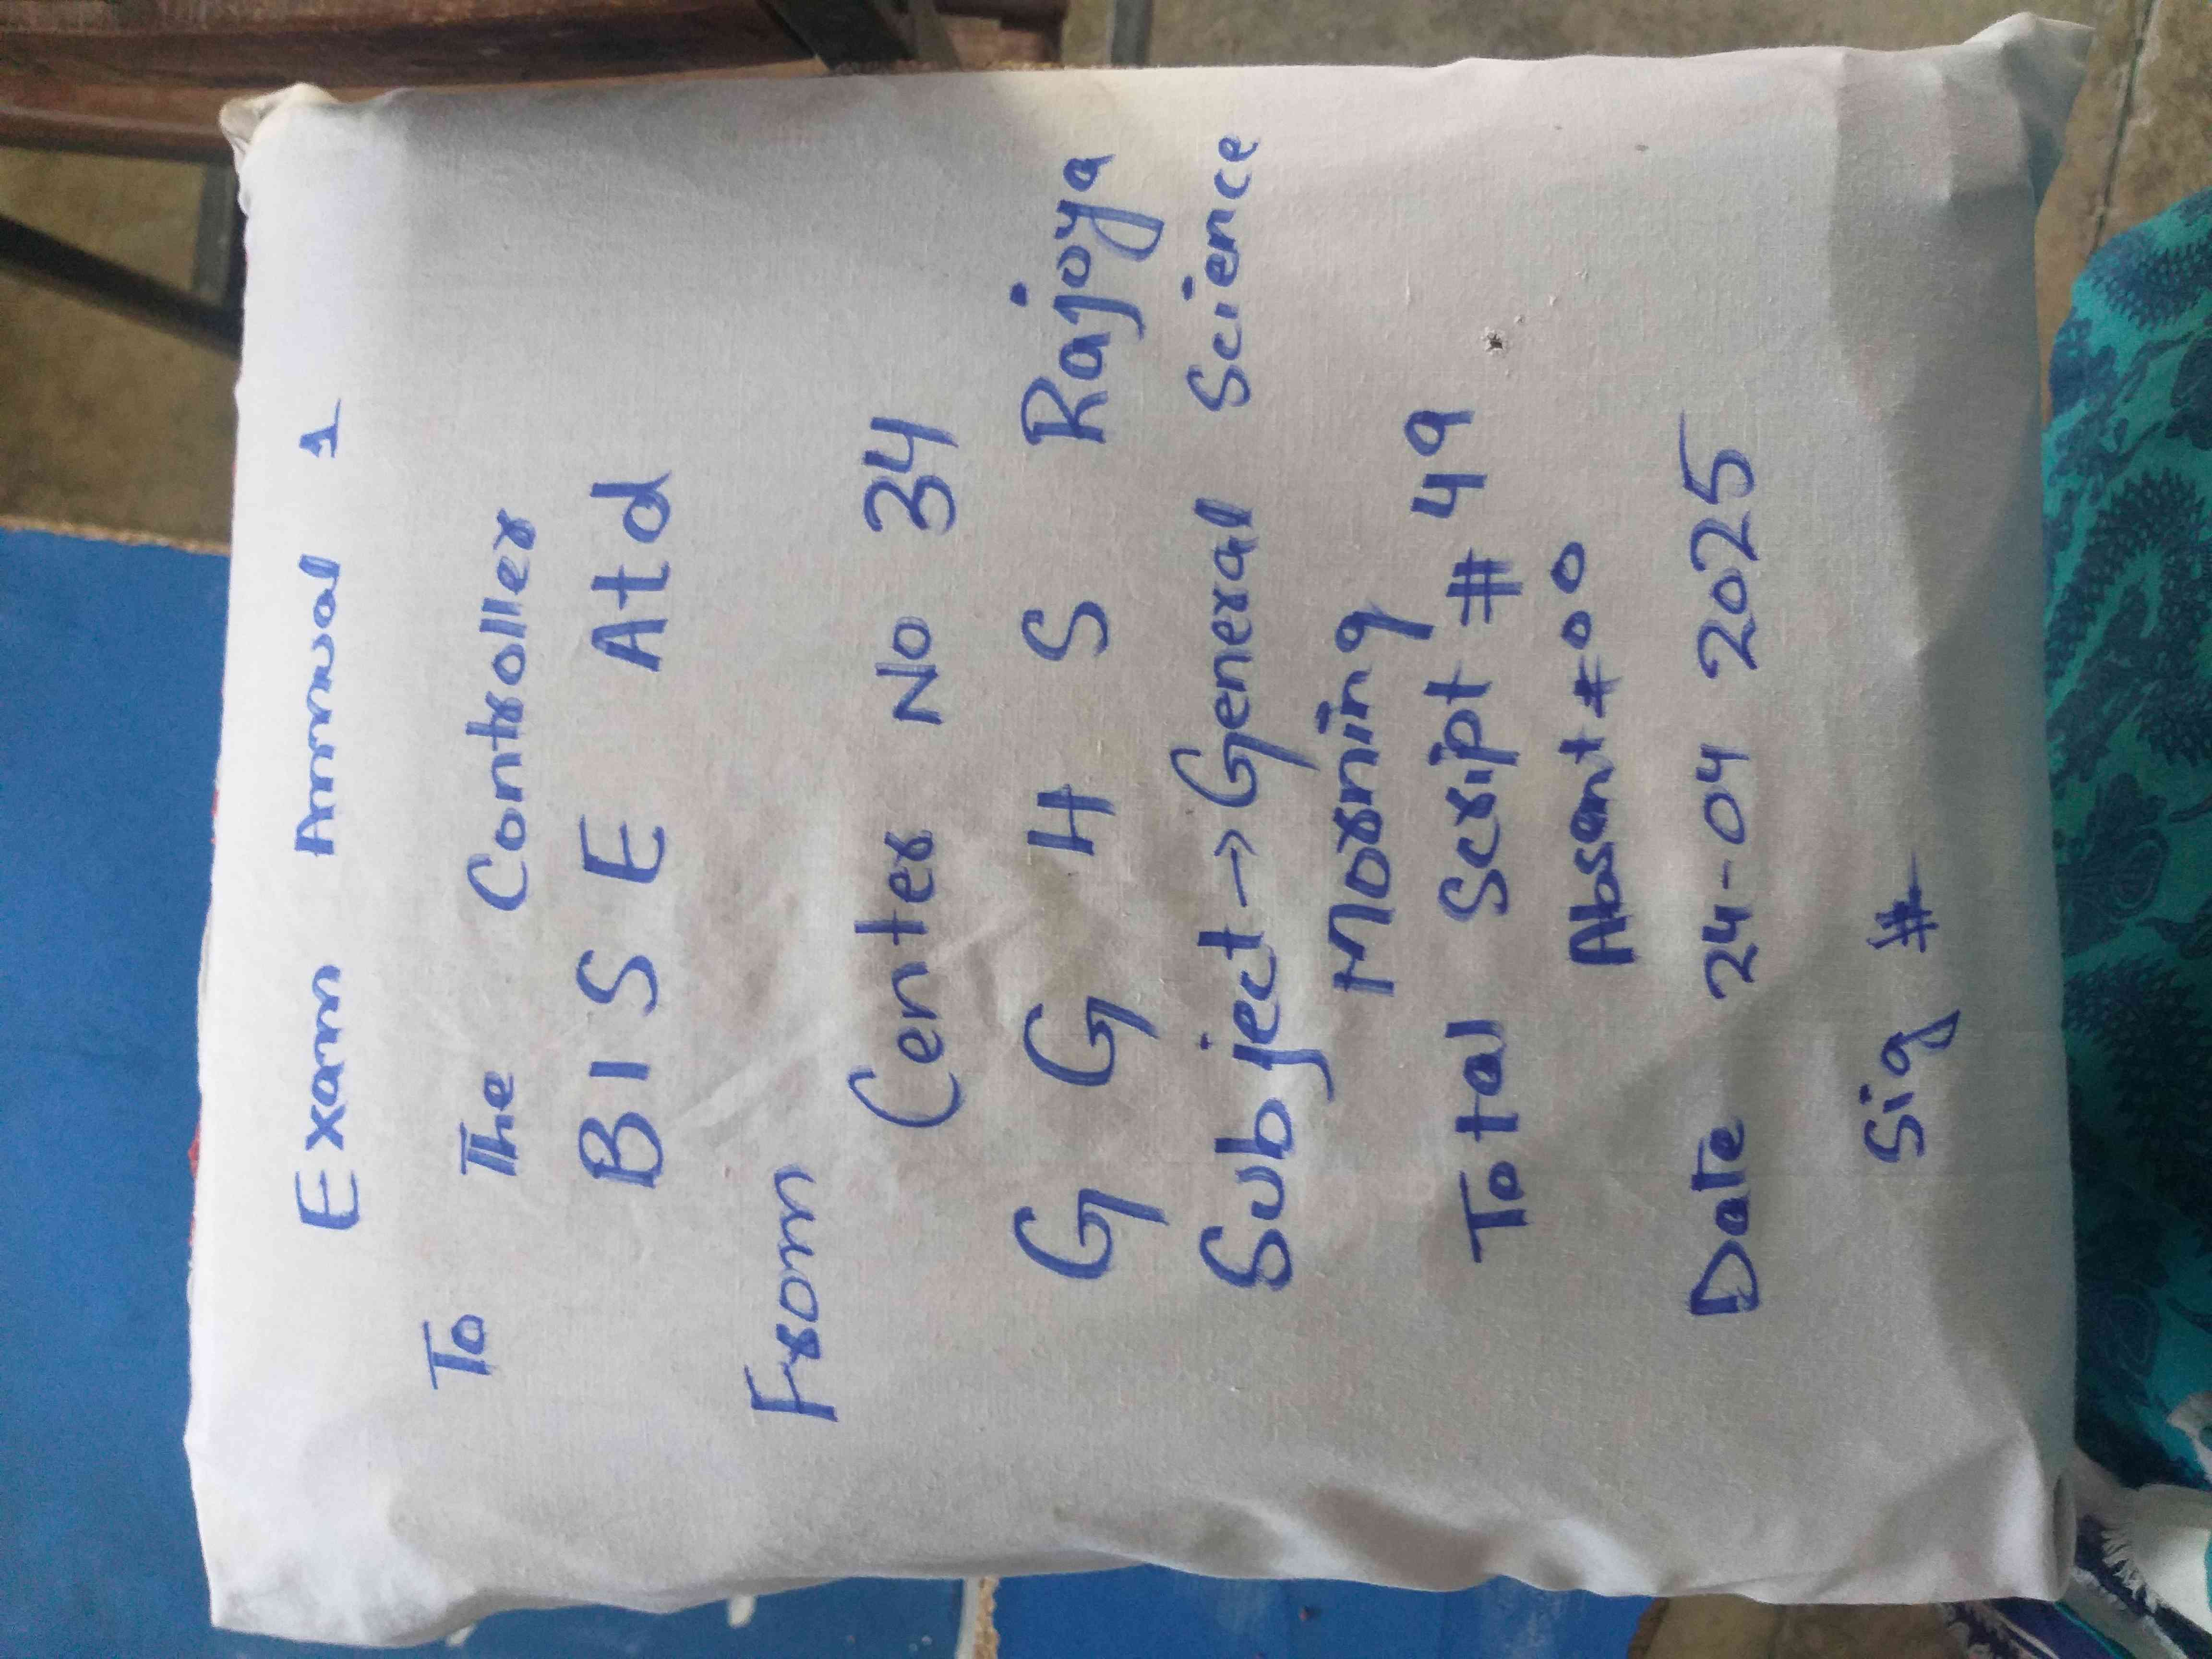 Exam Annual 1
To The Controller
B I S E Atd
From
Center No 34
G G H S Rajoya
Subject → General Science
Morning
Total Script # 49
Absent # 00
Date 24-04 2025
Sig #